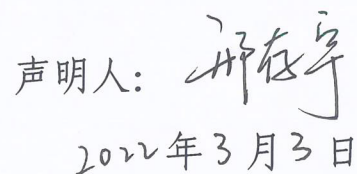 声明人：邢存宇
2022年3月3日